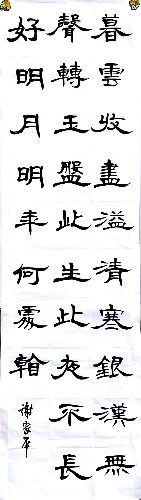 暮雲收盡溢清寒銀漢無
聲轉玉盤此生此夜不長
好明月明年何處看
謝家平